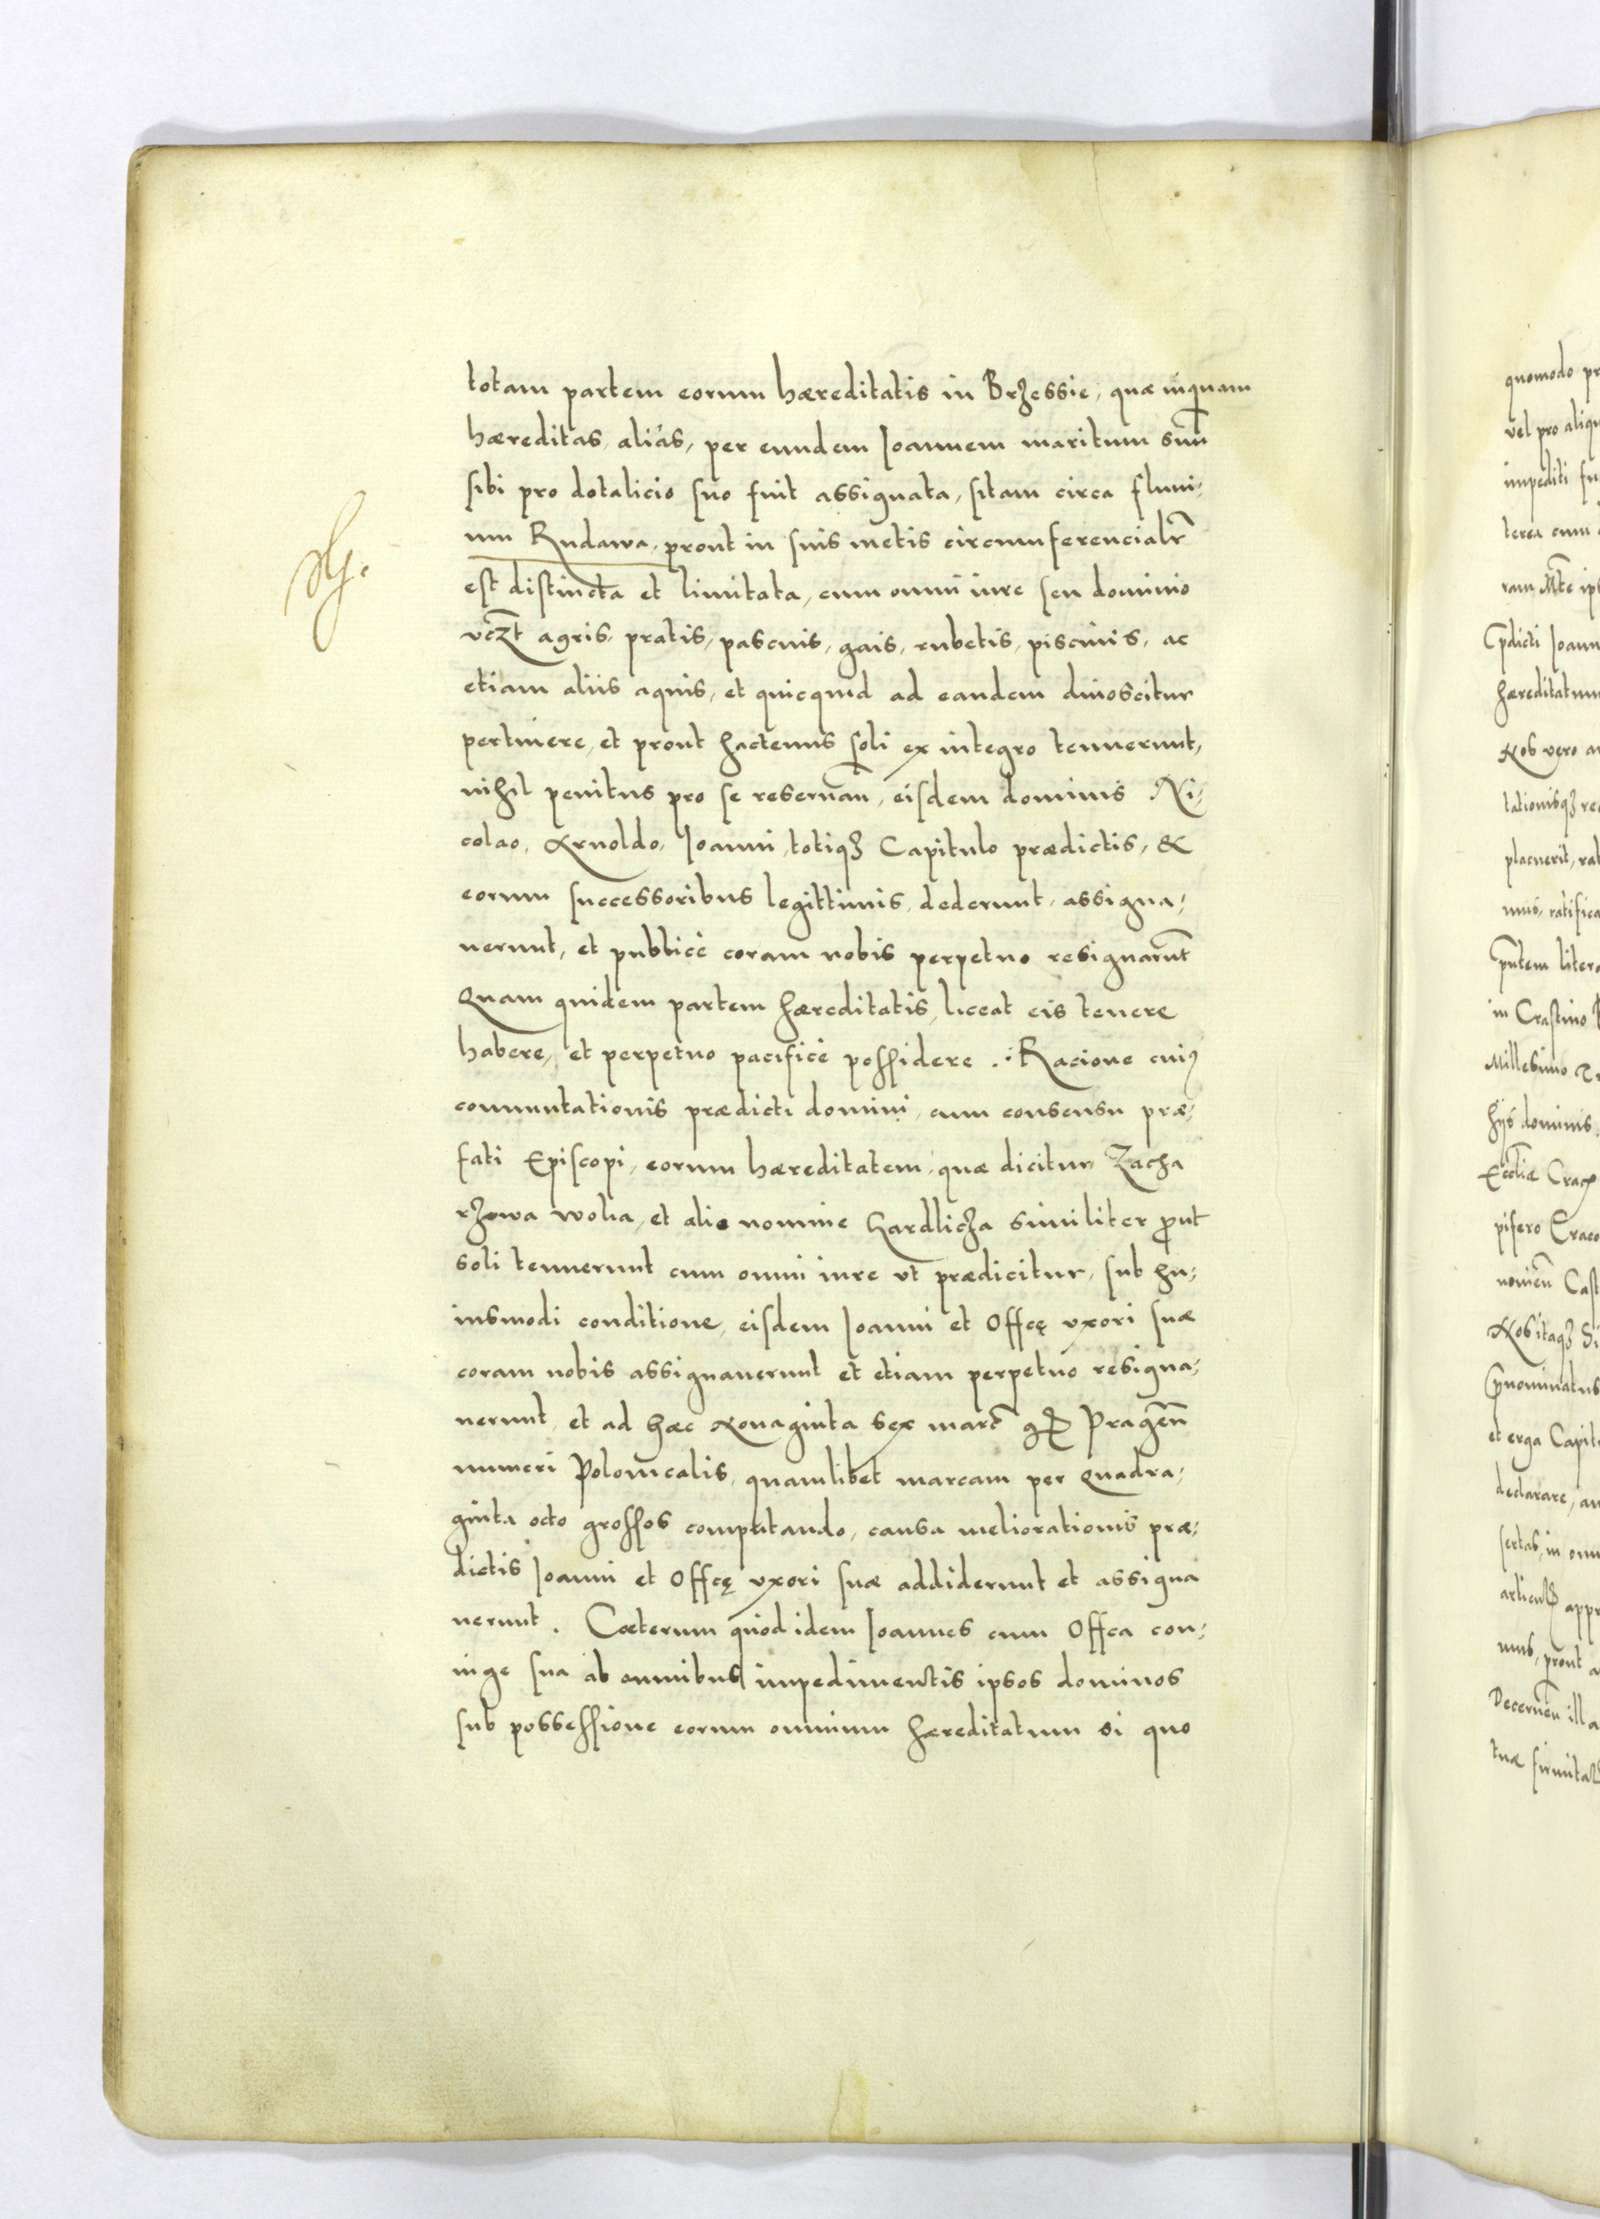 totam partem eorum hæreditatis in Brzessie, quæ inquam
hæreditas, aliàs, per eundem Joannem maritum suũ
sibi pro dotalicio suo fuit assignata, sitam circa fluui,
um Rudawa, prout in suis metis circumferencialr̃
est distincta et limitata, cum omni iure seu dominio
vcz̃t agris, pratis, pascuis, gais, rubetis, piscinis, ac
etiam aliis aquis, et quicquid ad eandem dinoscitur
pertinere, et prout hactenus soli ex integro tenuerunt,
nihil penitus pro se reseruãn, eisdem dominis Ni,
colao, Arnoldo, Joanni, totiqꝫ Capitulo prædictis, &
eorum successoribus legittimis, dederunt, assigna,
uerunt, et publicè coram nobis perpetuo resignarũt
Quam quidem partem hæreditatis, liceat eis tenere
habere, et perpetuo pacificè possidere. Racione cuiꝰ
commutationis prædicti domini, cum consensu præ,
fati Episcopi, eorum hæreditatem, quæ dicitur Zacha
rzowa wola, et alio nomine hardlicza similiter ꝓut
soli tenuerunt cum omni iure vt prædicitur, sub hu,
iusmodi conditione, eisdem Joanni et Offcę vxori suæ
coram nobis assignauerunt et etiam perpetuo resigna,
uerunt, et ad hæc Nonaginta sex marc̃ Pragen̄
numeri Polonicalis, quamlibet marcam per Quadra,
ginta octo grossos computando, causa meliorationis præ,
dictis Joanni et Offcę vxori suæ addiderunt et assigna
uerunt. Cæterum quod idem Joannes cum Offca con,
iuge sua ab omnibus impedimentis ipsos dominos
sub possessione eorum omnium hæreditatum si quo
quomodo pr
vel pro aliqu
impediti fu
terea cum
ram Mte ips
Joann
hæreditatum
Nos vero a
tationisqꝫ re
placuerit, rat
mus, ratifica
litera
in Crastino
Millesimo
hijs dominis
Ecclæ Crac
pifero Craco
Cast
Nos itaqꝫ Si
et erga Capit
declarare, a
sertas, in om
appr
mus, prout a
Decernen̄ illa
tuæ firmita